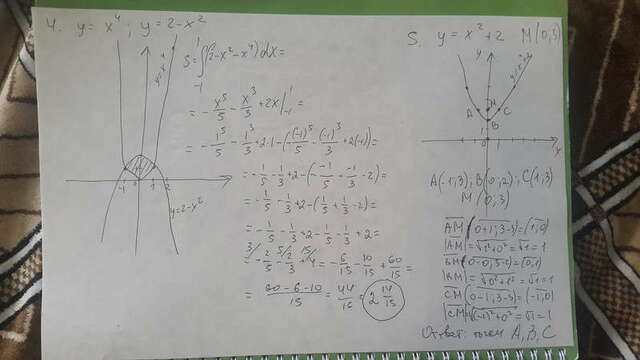 4. y = x⁴ ; y = 2 - x²
S = ∫₋₁¹ (2 - x² - x⁴) dx =
= - x⁵/5 - x³/3 + 2x |₋₁¹ =
= - 1⁵/5 - 1³/3 + 2·1 - (-(-1)⁵/5 - (-1)³/3 + 2(-1)) =
= - 1/5 - 1/3 + 2 - (- -1/5 - -1/3 - 2) =
= - 1/5 - 1/3 + 2 - (1/5 + 1/3 - 2) =
= - 1/5 - 1/3 + 2 - 1/5 - 1/3 + 2 =
= - 2/5 - 2/3 + 4 = - 6/15 - 10/15 + 60/15 =
= (60 - 6 - 10)/15 = 44/15 = 2 14/15
-1 0 1 2
y = 2 - x²
5. y = x² + 2 M(0,3)
y
y = x² + 2
A M C
B
1
x
A(-1;3), B(0,2), C(1,3)
M(0,3)
AM (0+1; 3-3) = (1;0)
|AM| = √1² + 0² = √1 = 1
BM (0-0, 3-2) = (0,1)
|BM| = √0² + 1² = √1 = 1
CM (0-1, 3-3) = (-1,0)
|CM| = √(-1)² + 0² = √1 = 1
Ответ: точки A, B, C